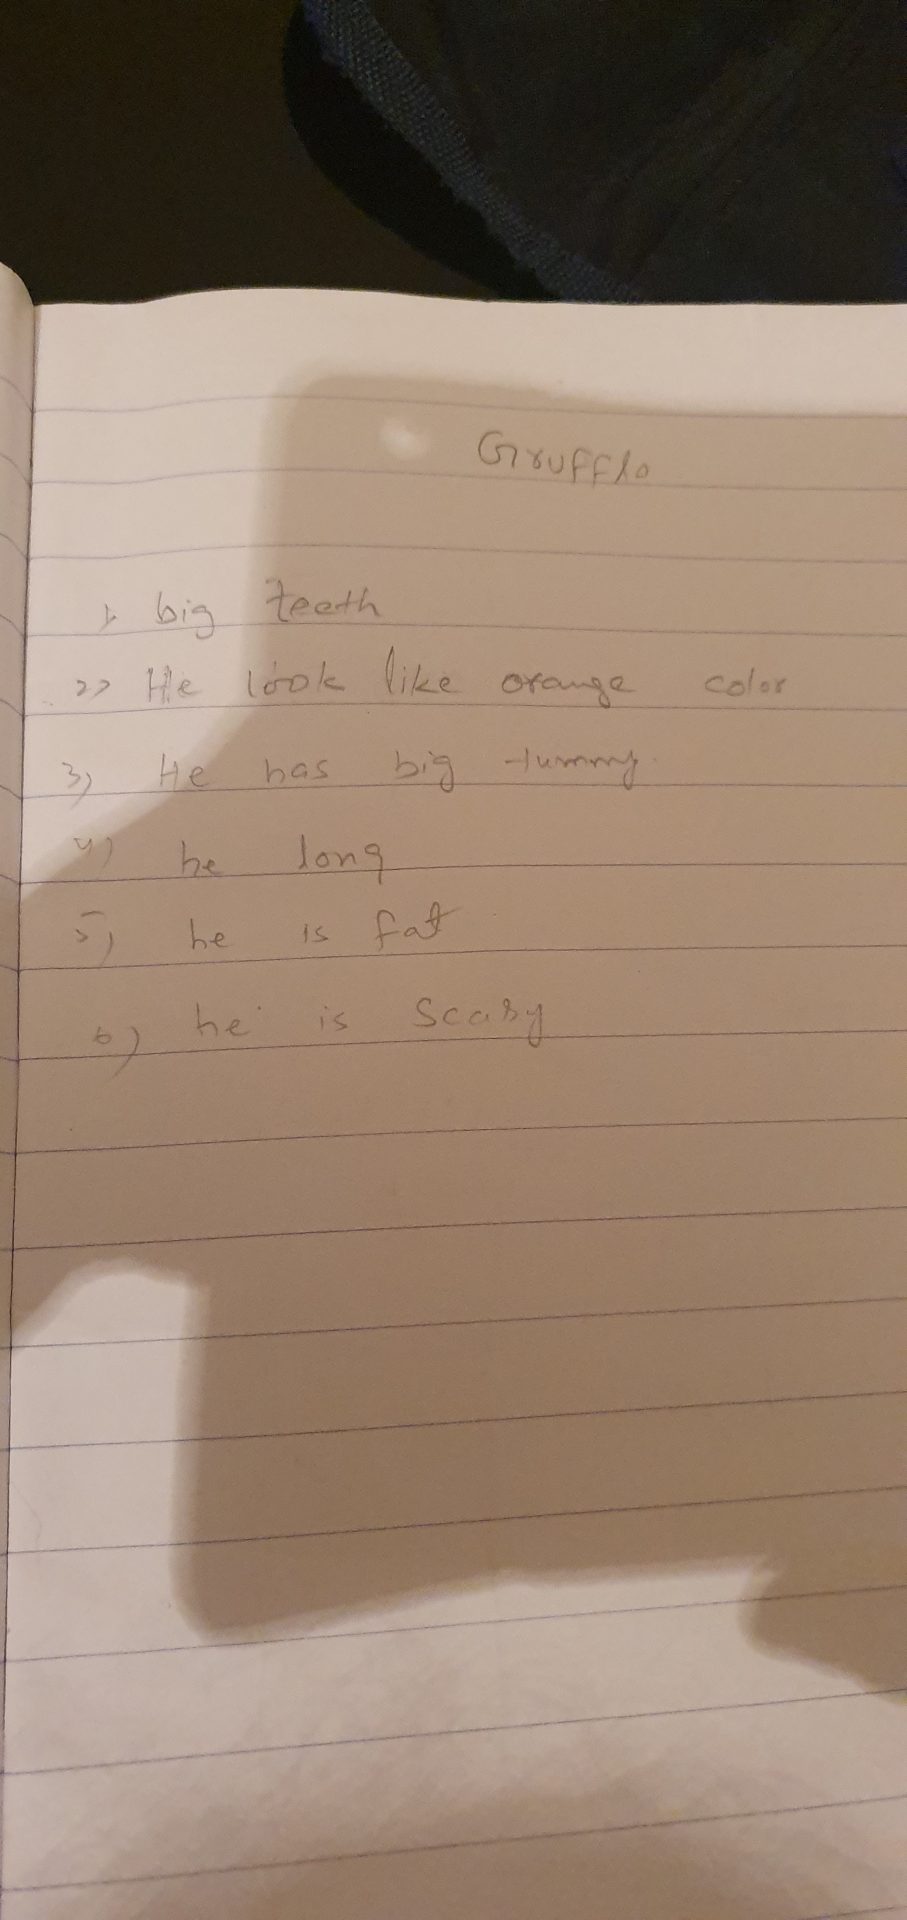 Grufflo
1) big teeth
2) He look like orange color
3) He has big tummy.
4) he long
5) he is fat
6) he is scary